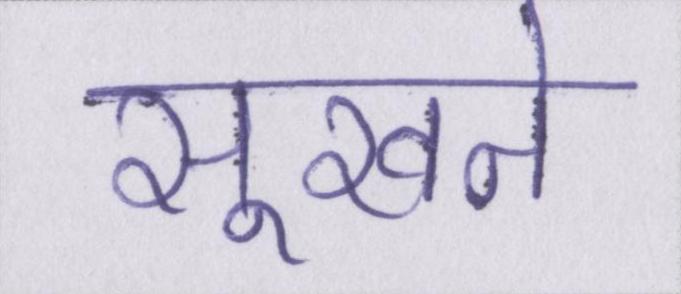 सूखने